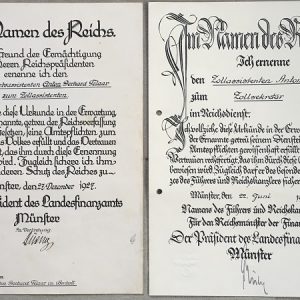 Namen des Reichs.
Grund der Ermächtigung
Herrn Reichspräsidenten
ernenne ich den
Gerhard
zum Zollassistenten.
diese Urkunde in der Erwartung,
ernannte, getreu der Reichsverfassung
seine Amtspflichten zum
des Volkes erfüllt und das Vertrauen
das ihm durch diese Ernennung
wird. Zugleich sichere ich ihm
Schutz des Reiches zu.
Münster, den 23 Dezember 1927.
Präsident des Landesfinanzamts
Münster
In Vertretung
Gerhard in
Im Namen des Re
Ich ernenne
den Zollassistenten Anton
zum Zollsekretär
im Reichsdienst.
Ich vollziehe diese Urkunde in der Erwar
der Ernannte getreu seinem Diensteide
Amtspflichten gewissenhaft erfüllt
Vertrauen rechtfertigt, das ihm durch diese
wiesen wird. Zugleich darf er des besonderen
zes des Führers und Reichskanzlers sicher
Münster, den 22. Juni
Namens des Führers und Reichskanz
Für den Reichsminister der Finanz
Der Präsident des Landesfinan
Münster